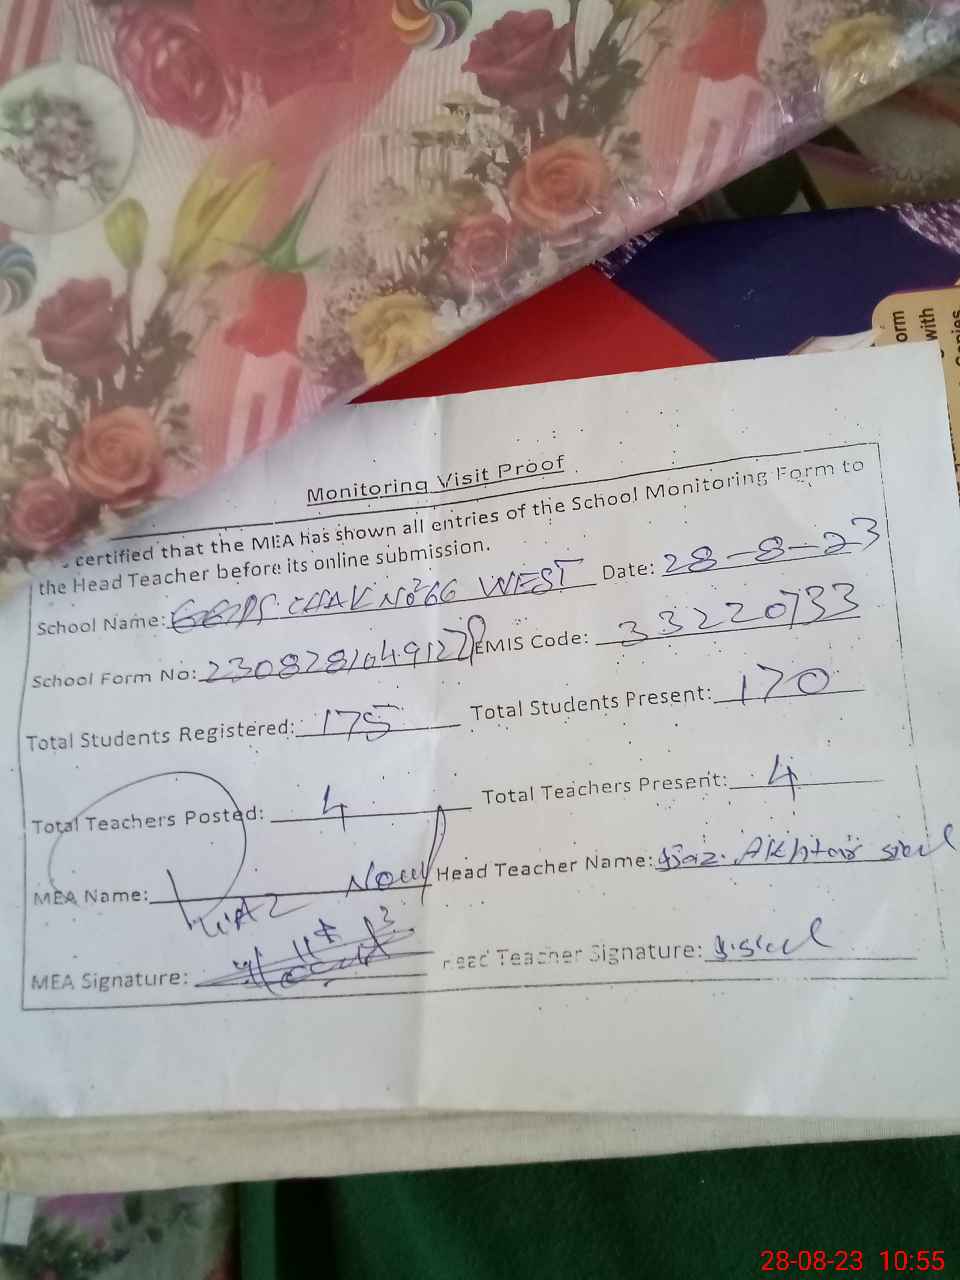 orm
with
Copies
Monitoring Visit Proof
certified that the MEA has shown all entries of the School Monitoring Form to
the Head Teacher before its online submission.
School Name: CHAK NO 66 WEST Date: 28-8-23
School Form No: EMIS Code: 33220733
Total Students Registered: 175 Total Students Present: 170
Total Teachers Posted: 4 Total Teachers Present: 4
MEA Name: Head Teacher Name: Akhtar
MEA Signature: Head Teacher Signature:
28-08-23 10:55